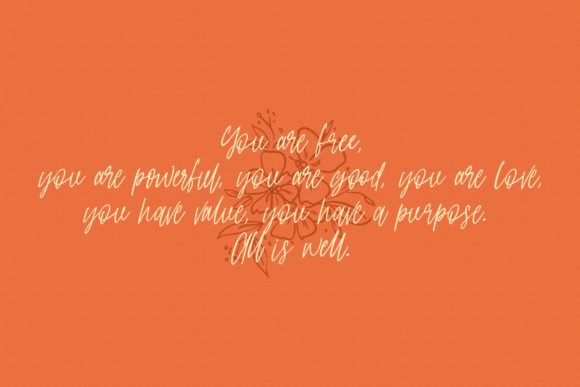 You are free,
you are powerful, you are good, you are love,
you have value, you have a purpose.
All is well.